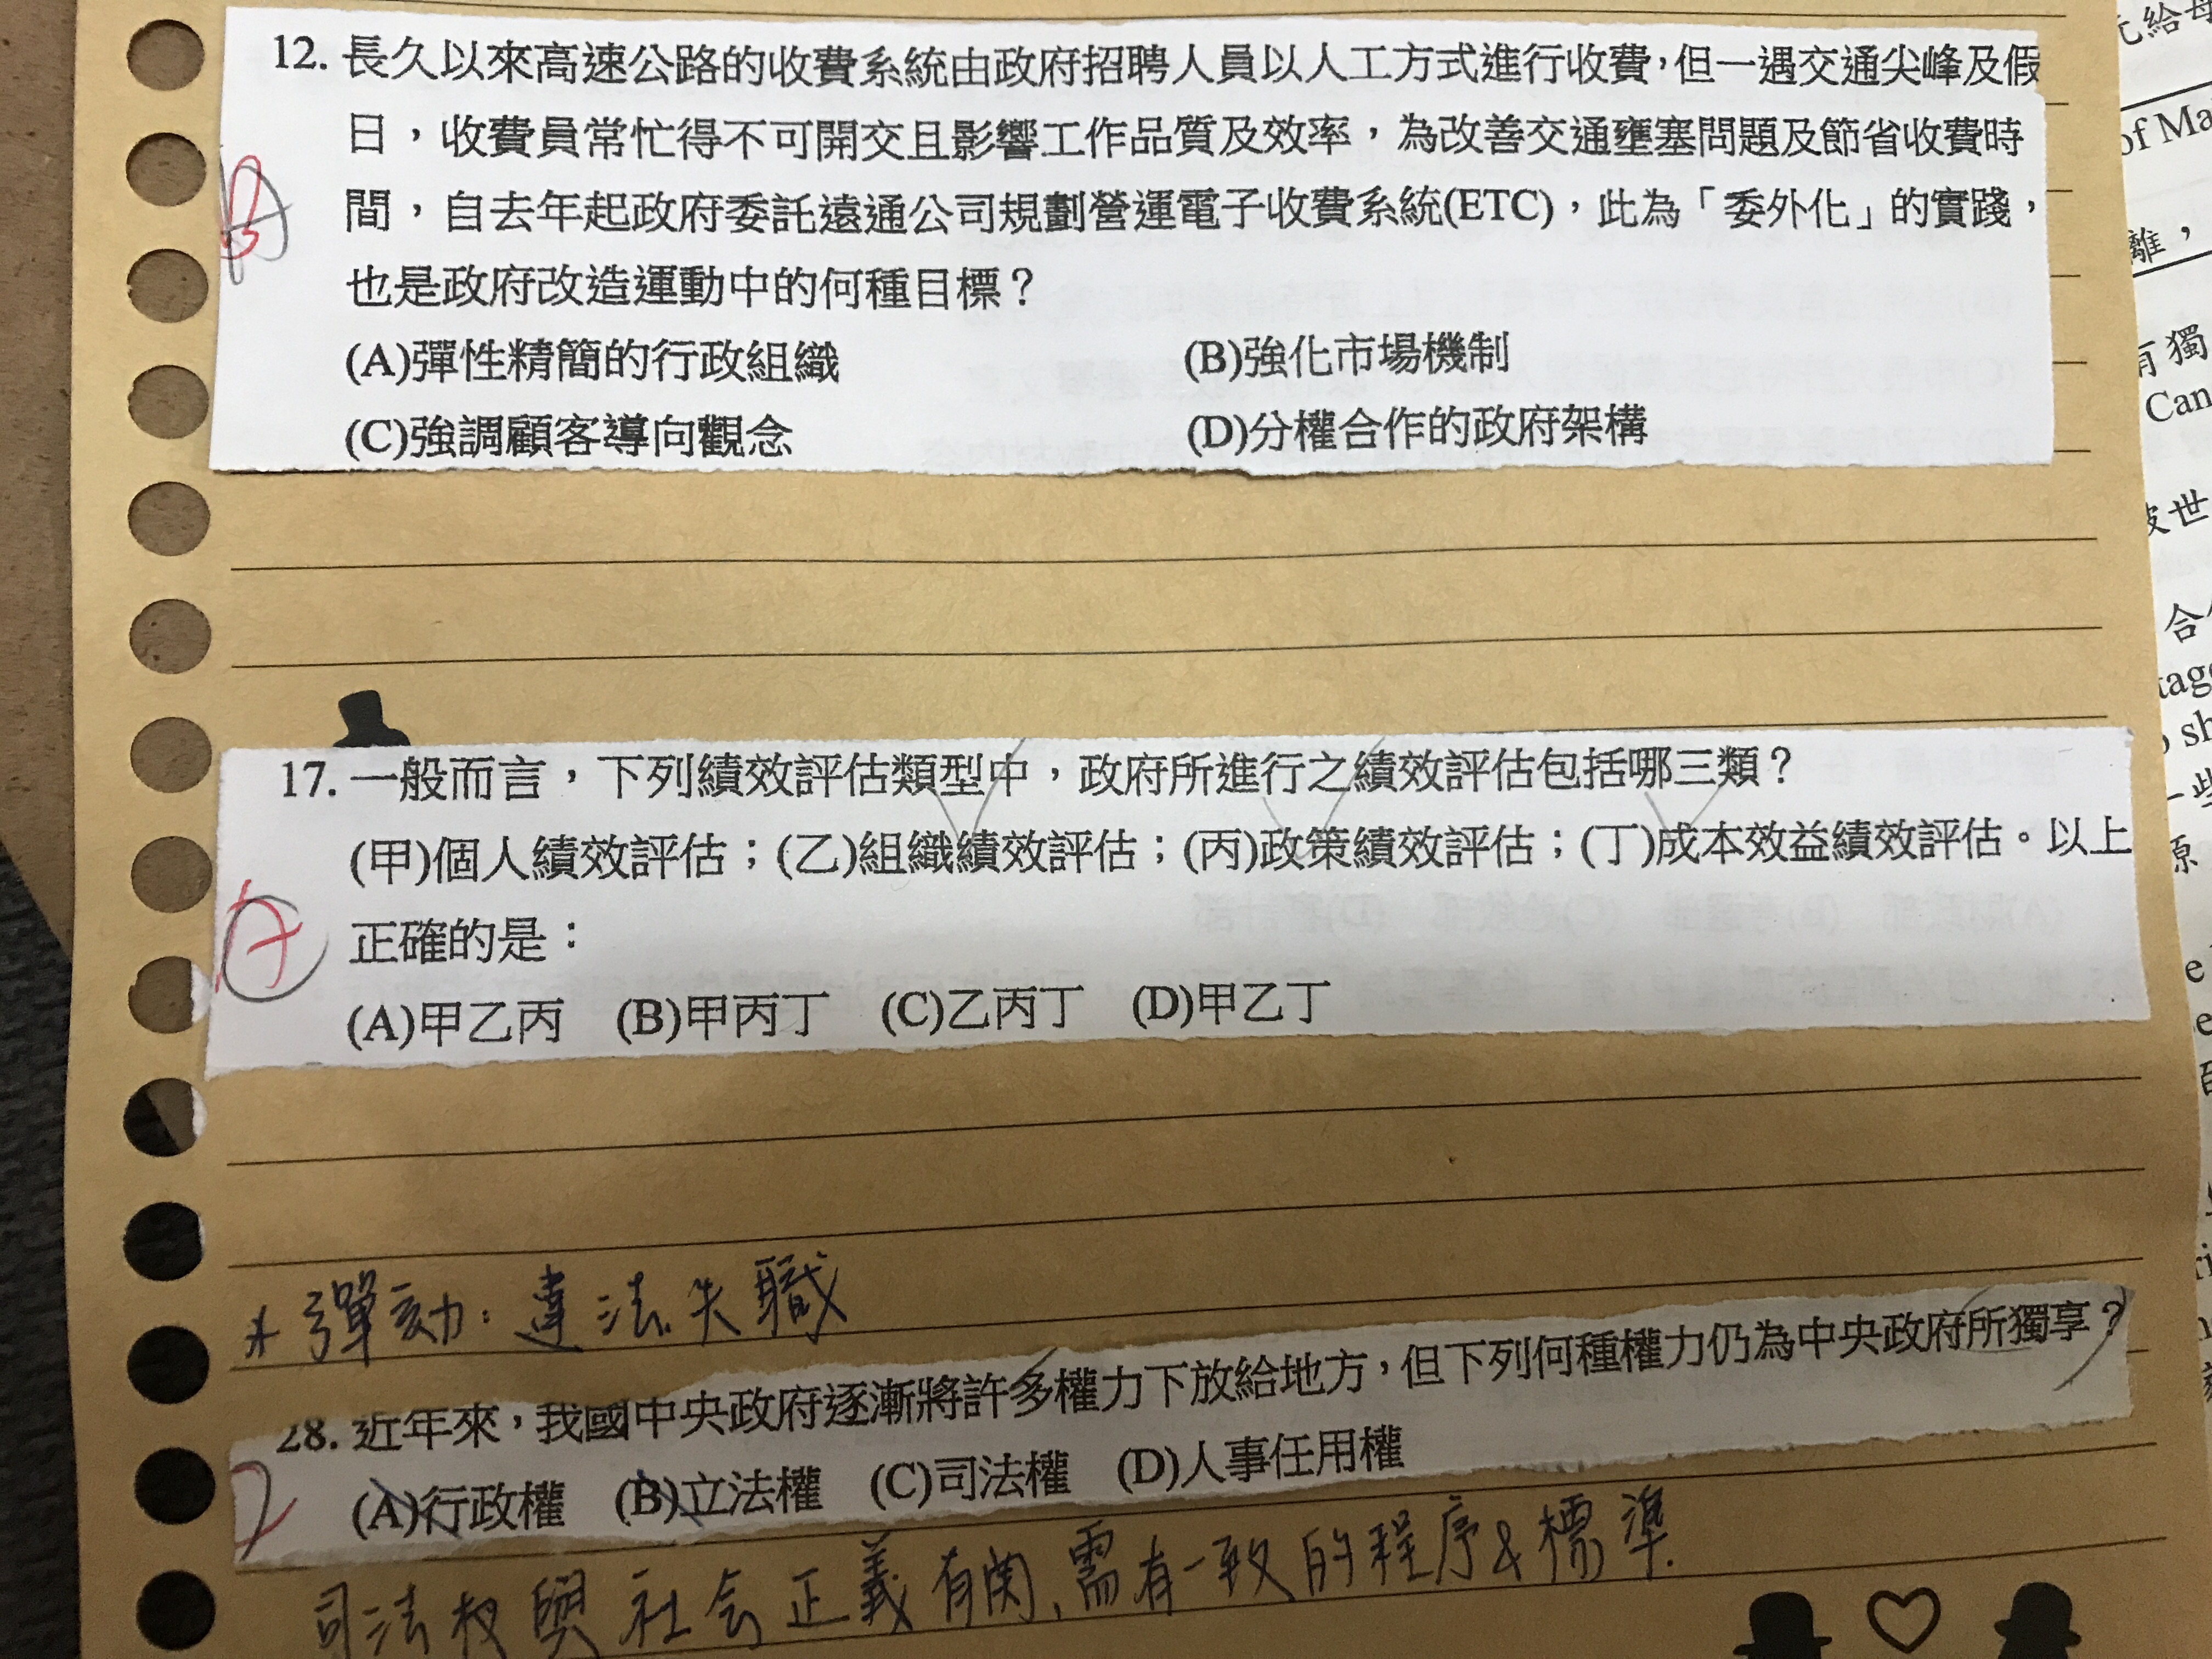 12. 長久以來高速公路的收費系統由政府招聘人員以人工方式進行收費,但一遇交通尖峰及假
日,收費員常忙得不可開交且影響工作品質及效率,為改善交通壅塞問題及節省收費時
間,自去年起政府委託遠通公司規劃營運電子收費系統(ETC),此為「委外化」的實踐,
也是政府改造運動中的何種目標?
(A)彈性精簡的行政組織 (B)強化市場機制
(C)強調顧客導向觀念 (D)分權合作的政府架構
B
17. 一般而言,下列績效評估類型中,政府所進行之績效評估包括哪三類?
(甲)個人績效評估;(乙)組織績效評估;(丙)政策績效評估;(丁)成本效益績效評估。以上
正確的是:
(A)甲乙丙 (B)甲丙丁 (C)乙丙丁 (D)甲乙丁
A
彈劾:違法失職
28. 近年來,我國中央政府逐漸將許多權力下放給地方,但下列何種權力仍為中央政府所獨享?
(A)行政權 (B)立法權 (C)司法權 (D)人事任用權
司法权與社会正義有関、需有一致的程序&標準.
of Ma
離,
有獨
Can
世
合